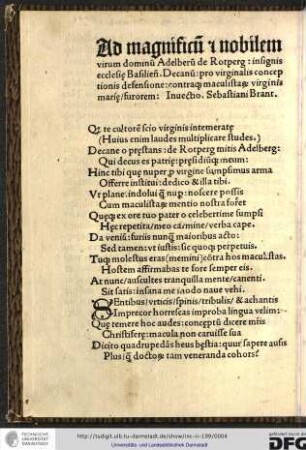 Ad magnificũ ⁊ nobilem
virum dominũ Adelberũ de Rotperg : insignis
ecclesię Basilieñ. Decanũ: pro virginalis concep
tionis defensione: contraq; maculistaꝝ virginis
marię/furorem: Inuectio. Sebastiani Brant.
Qꝫ te cultorẽ scio virginis intemeratę
(Huius enim laudes multiplicare studes.)
Decane o pręstans: de Rotperg mitis Adelberg:
Qui decus es patrię: pręsidiũq; meum:
Hinc tibi quę nuper ꝓ virgine sumpsimus arma
Offerre institui: dedico & illa tibi.
Vt plane indolui ꝙ nuꝑ: noscere possis
Cum maculistaꝝ mentio nostra foret
Quęq; ex ore tuo pater o celebertime sumpsi
Hęc repetita/meo cármine/verba cape.
Da veniã: furiis nunq̃ maioribus acto:
Sed tamen: vt iustis: sic quoq; perpetuis.
Tuq; molestus eras (memini) cõtra hos maculistas.
Hostem affirmabas te fore semper eis.
At nunc/auscultes tranquilla mente/canenti.
Sit satis: insana me modo naue vehi.
SEntibus/vrticis/spinis/tribulis/& achantis
Imprecor horrescas improba lingua velim:
Quę temere hoc audes: conceptũ dicere miis
Christiferę: macula non caruisse sua
Dicito quadrupedãs heus bestia: quur sapere ausis
Plus/q̃ doctoꝝ tam veneranda cohors?
TECHNISCHE
UNIVERSITÄT
DARMSTADT
http://tudigit.ulb.tu-darmstadt.de/show/inc-iv-199/0004
Universitäts- und Landesbibliothek Darmstadt
DFG